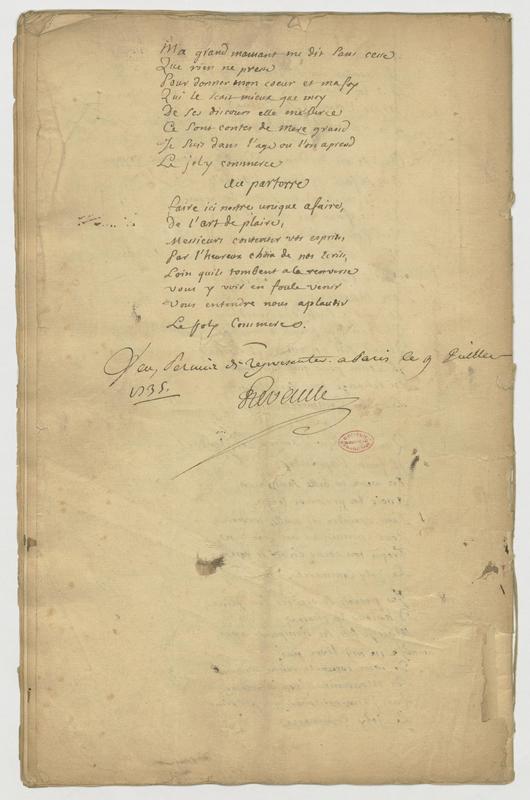 Ma grand mamant me dit sans cesse
Que rien ne presse
Pour donner mon coeur et ma foy
Qui le scait mieux que moy
De ses discours elle me berce
Ce sont contes de mere grand
Je suis dans l'age ou l'on aprend
Le joly commerce
au partorre
faire ici nostre unique afaire,
De l'art de plaire,
Messieurs contenter vos esprits,
Par l'heureux choix de nos Ecrits,
Loin quils tombent a la renverse
vous y voir en foule venir
vous entendre nous aplaudir
Le Joly Commerce.
Veu, Permis de representer. a Paris le 9 Juillet
1735.